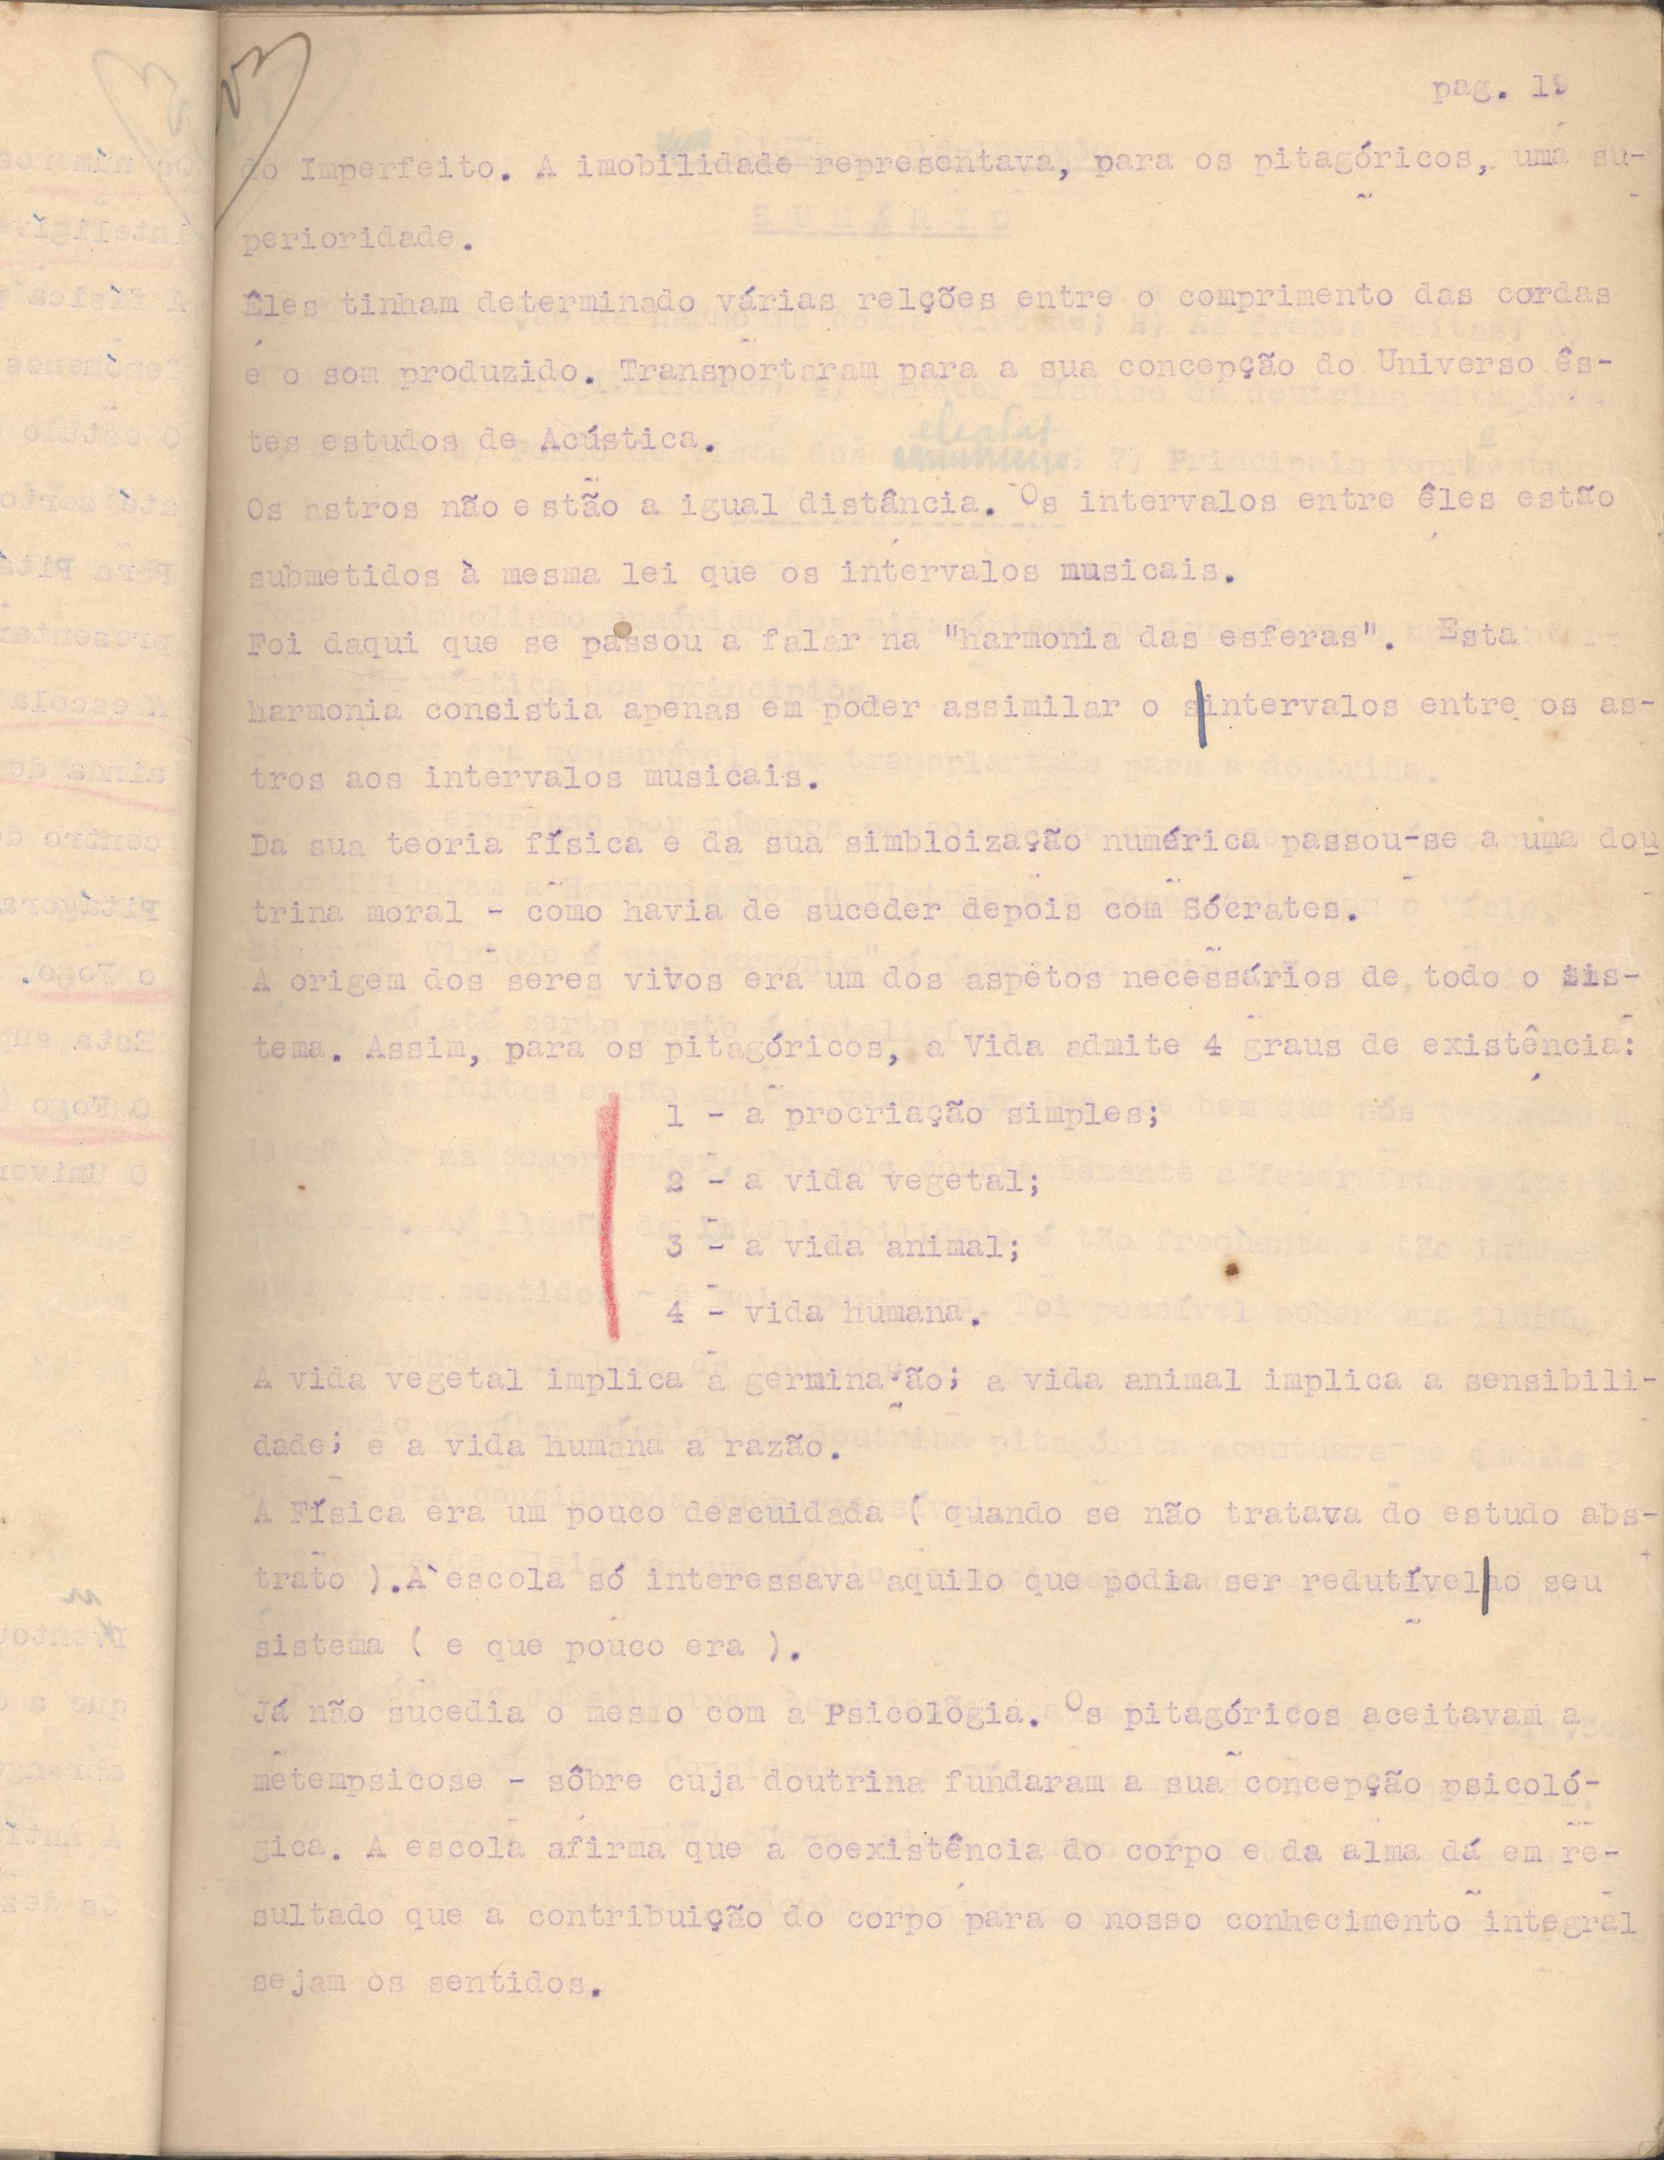 pag. 19
do Imperfeito. A imobilidade representava, para os pitagóricos, uma su-
perioridade.
Êles tinham determinado várias relções entre o comprimento das cordas
e o som produzido. Transportaram para a sua concepção do Universo ês-
tes estudos de Acústica.
Os astros não estão a igual distância. Os intervalos entre êles estão
submetidos à mesma lei que os intervalos musicais.
Foi daqui que se passou a falar na "harmonia das esferas". Esta
harmonia consistia apenas em poder assimilar o s|intervalos entre os as-
tros aos intervalos musicais.
Da sua teoria física e da sua simbloização numérica passou-se a uma dou
trina moral - como havia de suceder depois com Sócrates.
A origem dos seres vivos era um dos aspetos necessários de todo o sis-
tema. Assim, para os pitagóricos, a Vida admite 4 graus de existência:
1 - a procriação simples;
2 - a vida vegetal;
3 - a vida animal;
4 - vida humana.
A vida vegetal implica a germinação; a vida animal implica a sensibili-
dade; e a vida humana a razão.
A Física era um pouco descuidada ( quando se não tratava do estudo abs-
trato ).À escola só interessava aquilo que podia ser redutível|ao seu
sistema ( e que pouco era ).
Já não sucedia o mesmo com a Psicologia. Os pitagóricos aceitavam a
metempsicose - sôbre cuja doutrina fundaram a sua concepção psicoló-
gica. A escola afirma que a coexistência do corpo e da alma dá em re-
sultado que a contribuição do corpo para o nosso conhecimento integral
sejam os sentidos.